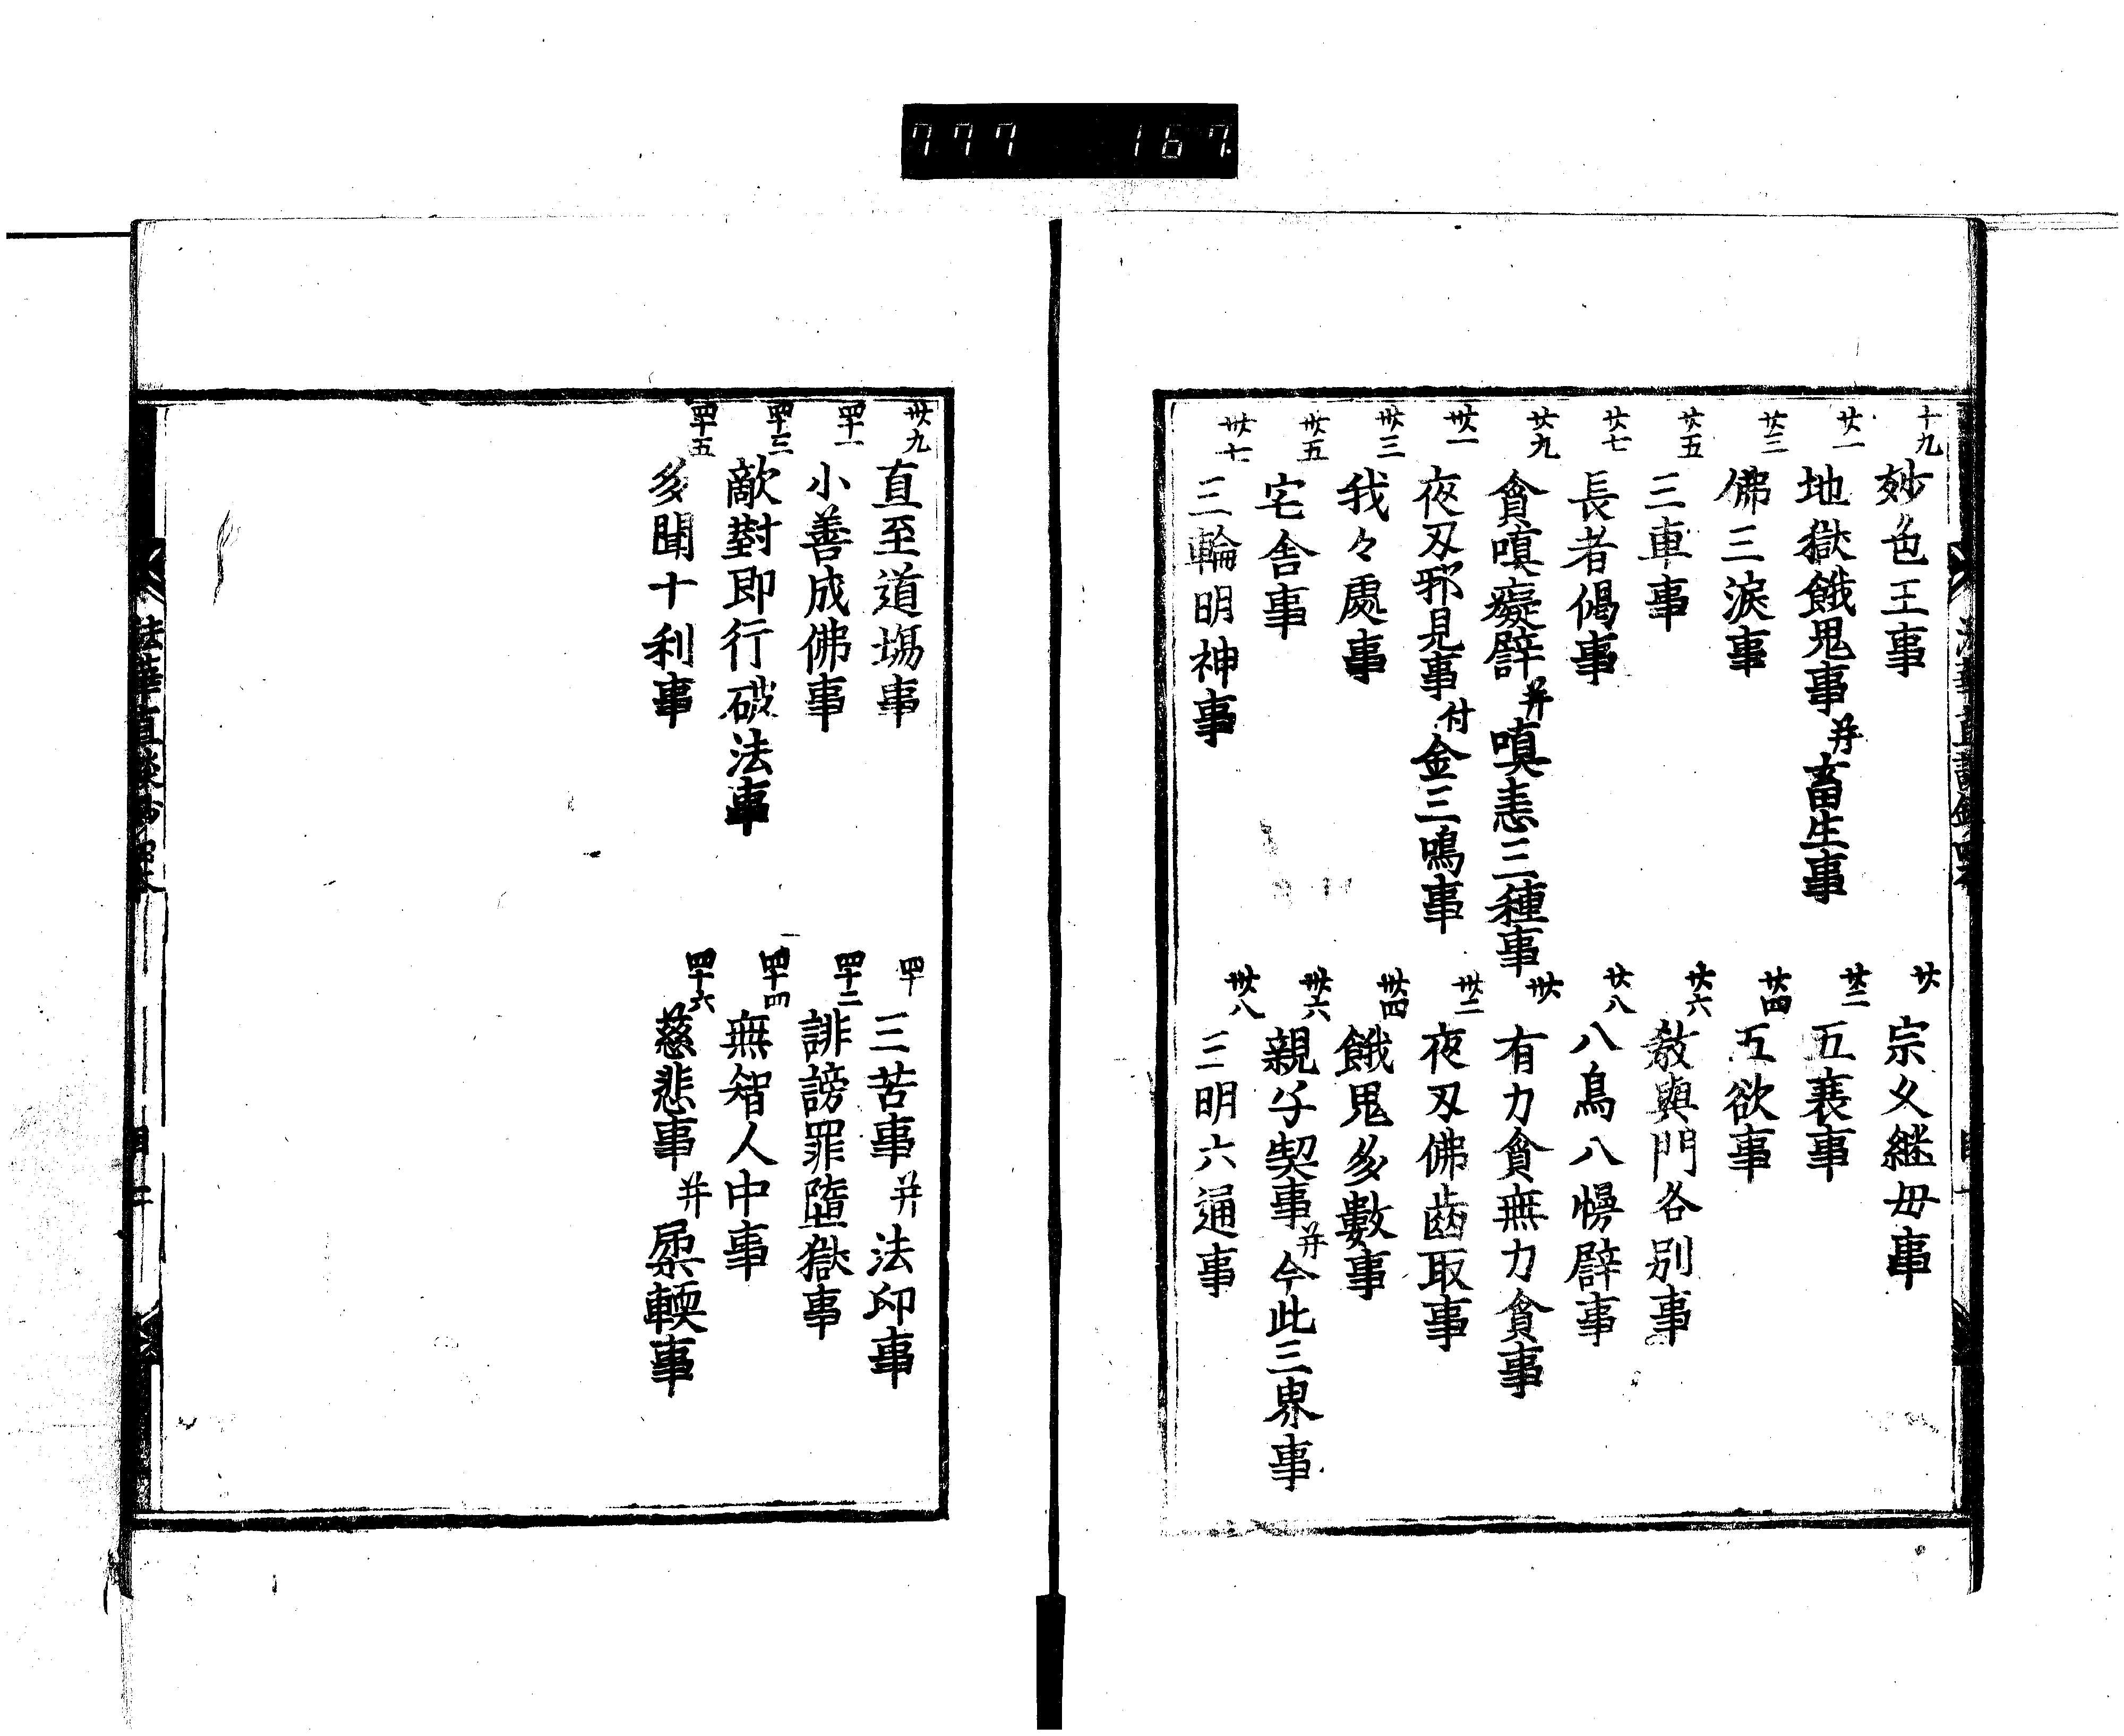 777 167
十九 妙色王事 廿 宗父継母事
廿一 地獄餓鬼事 并畜生事 廿二 五衰事
廿三 佛三淚事 廿四 五欲事
廿五 三車事 廿六 教與門各別事
廿七 長者偈事 廿八 八鳥八慢譬事
廿九 貪嗔癡譬 并嗔恚三種事 卅 有力貧無力貧事
卅一 夜叉邪見事 付金三鳴事 卅二 夜叉佛齒取事
卅三 我々處事 卅四 餓鬼多數事
卅五 宅舍事 卅六 親子契事 并今此三界事
卅七 三輪明神事 卅八 三明六通事
卅九 直至道場事 四十 三苦事 并法印事
四十一 小善成佛事 四十二 誹謗罪墮獄事
四十三 敵對即行破法事 四十四 無智人中事
四十五 多聞十利事 四十六 慈悲事 并柔輭事
法華直談鈔